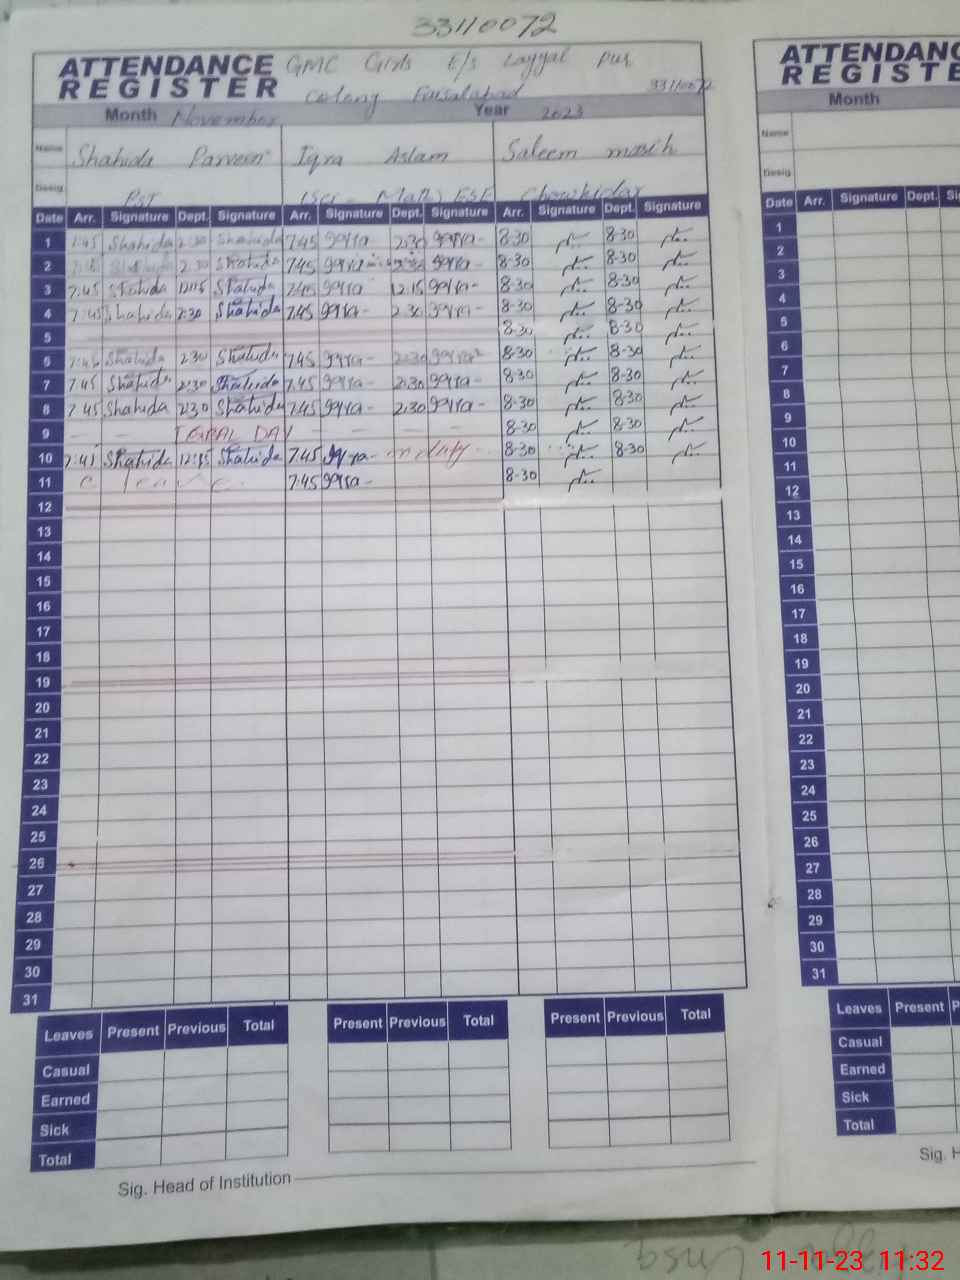 33110072
ATTENDANCE GMC Girls E/S Layyal Pur
REGISTER Colony Faisalabad 33110072
Month November Year 2023
Name Shahida Parveen Iqra Aslam Saleem masih
Desig. PST (Sci - Math) ESE Chowkidar
Date Arr. Signature Dept. Signature Arr. Signature Dept. Signature Arr. Signature Dept. Signature
1 7:45 Shahida 2:30 Shahida 7:45 Iqra 2:30 Iqra 8-30 8-30
2 Shahida 2:30 Shahida 7:45 Iqra Iqra 8-30 8-30
3 7:45 Shahida 12:15 Shahida 7:45 Iqra 12:15 Iqra 8-30 8-30
4 7:45 Shahida 2:30 Shahida 7:45 Iqra 2:30 Iqra 8-30 8-30
5 8-30 8-30
6 7:45 Shahida 2:30 Shahida 7:45 Iqra 2:30 Iqra 8-30 8-30
7 7:45 Shahida 2:30 Shahida 7:45 Iqra 2:30 Iqra 8-30 8-30
8 7:45 Shahida 2:30 Shahida 7:45 Iqra 2:30 Iqra 8-30 8-30
9 - - IQBAL DAY - - - - 8-30 8-30
10 7:45 Shahida 12:15 Shahida 7:45 Iqra on duty 8-30 8-30
11 C leave 7:45 Iqra 8-30
12
13
14
15
16
17
18
19
20
21
22
23
24
25
26
27
28
29
30
31
Leaves Present Previous Total Present Previous Total Present Previous Total
Casual
Earned
Sick
Total
Sig. Head of Institution
ATTENDANC
REGISTE
Month
Name
Desig.
Date Arr. Signature Dept. Si
1
2
3
4
5
6
7
8
9
10
11
12
13
14
15
16
17
18
19
20
21
22
23
24
25
26
27
28
29
30
31
Leaves Present P
Casual
Earned
Sick
Total
Sig. H
11-11-23 11:32